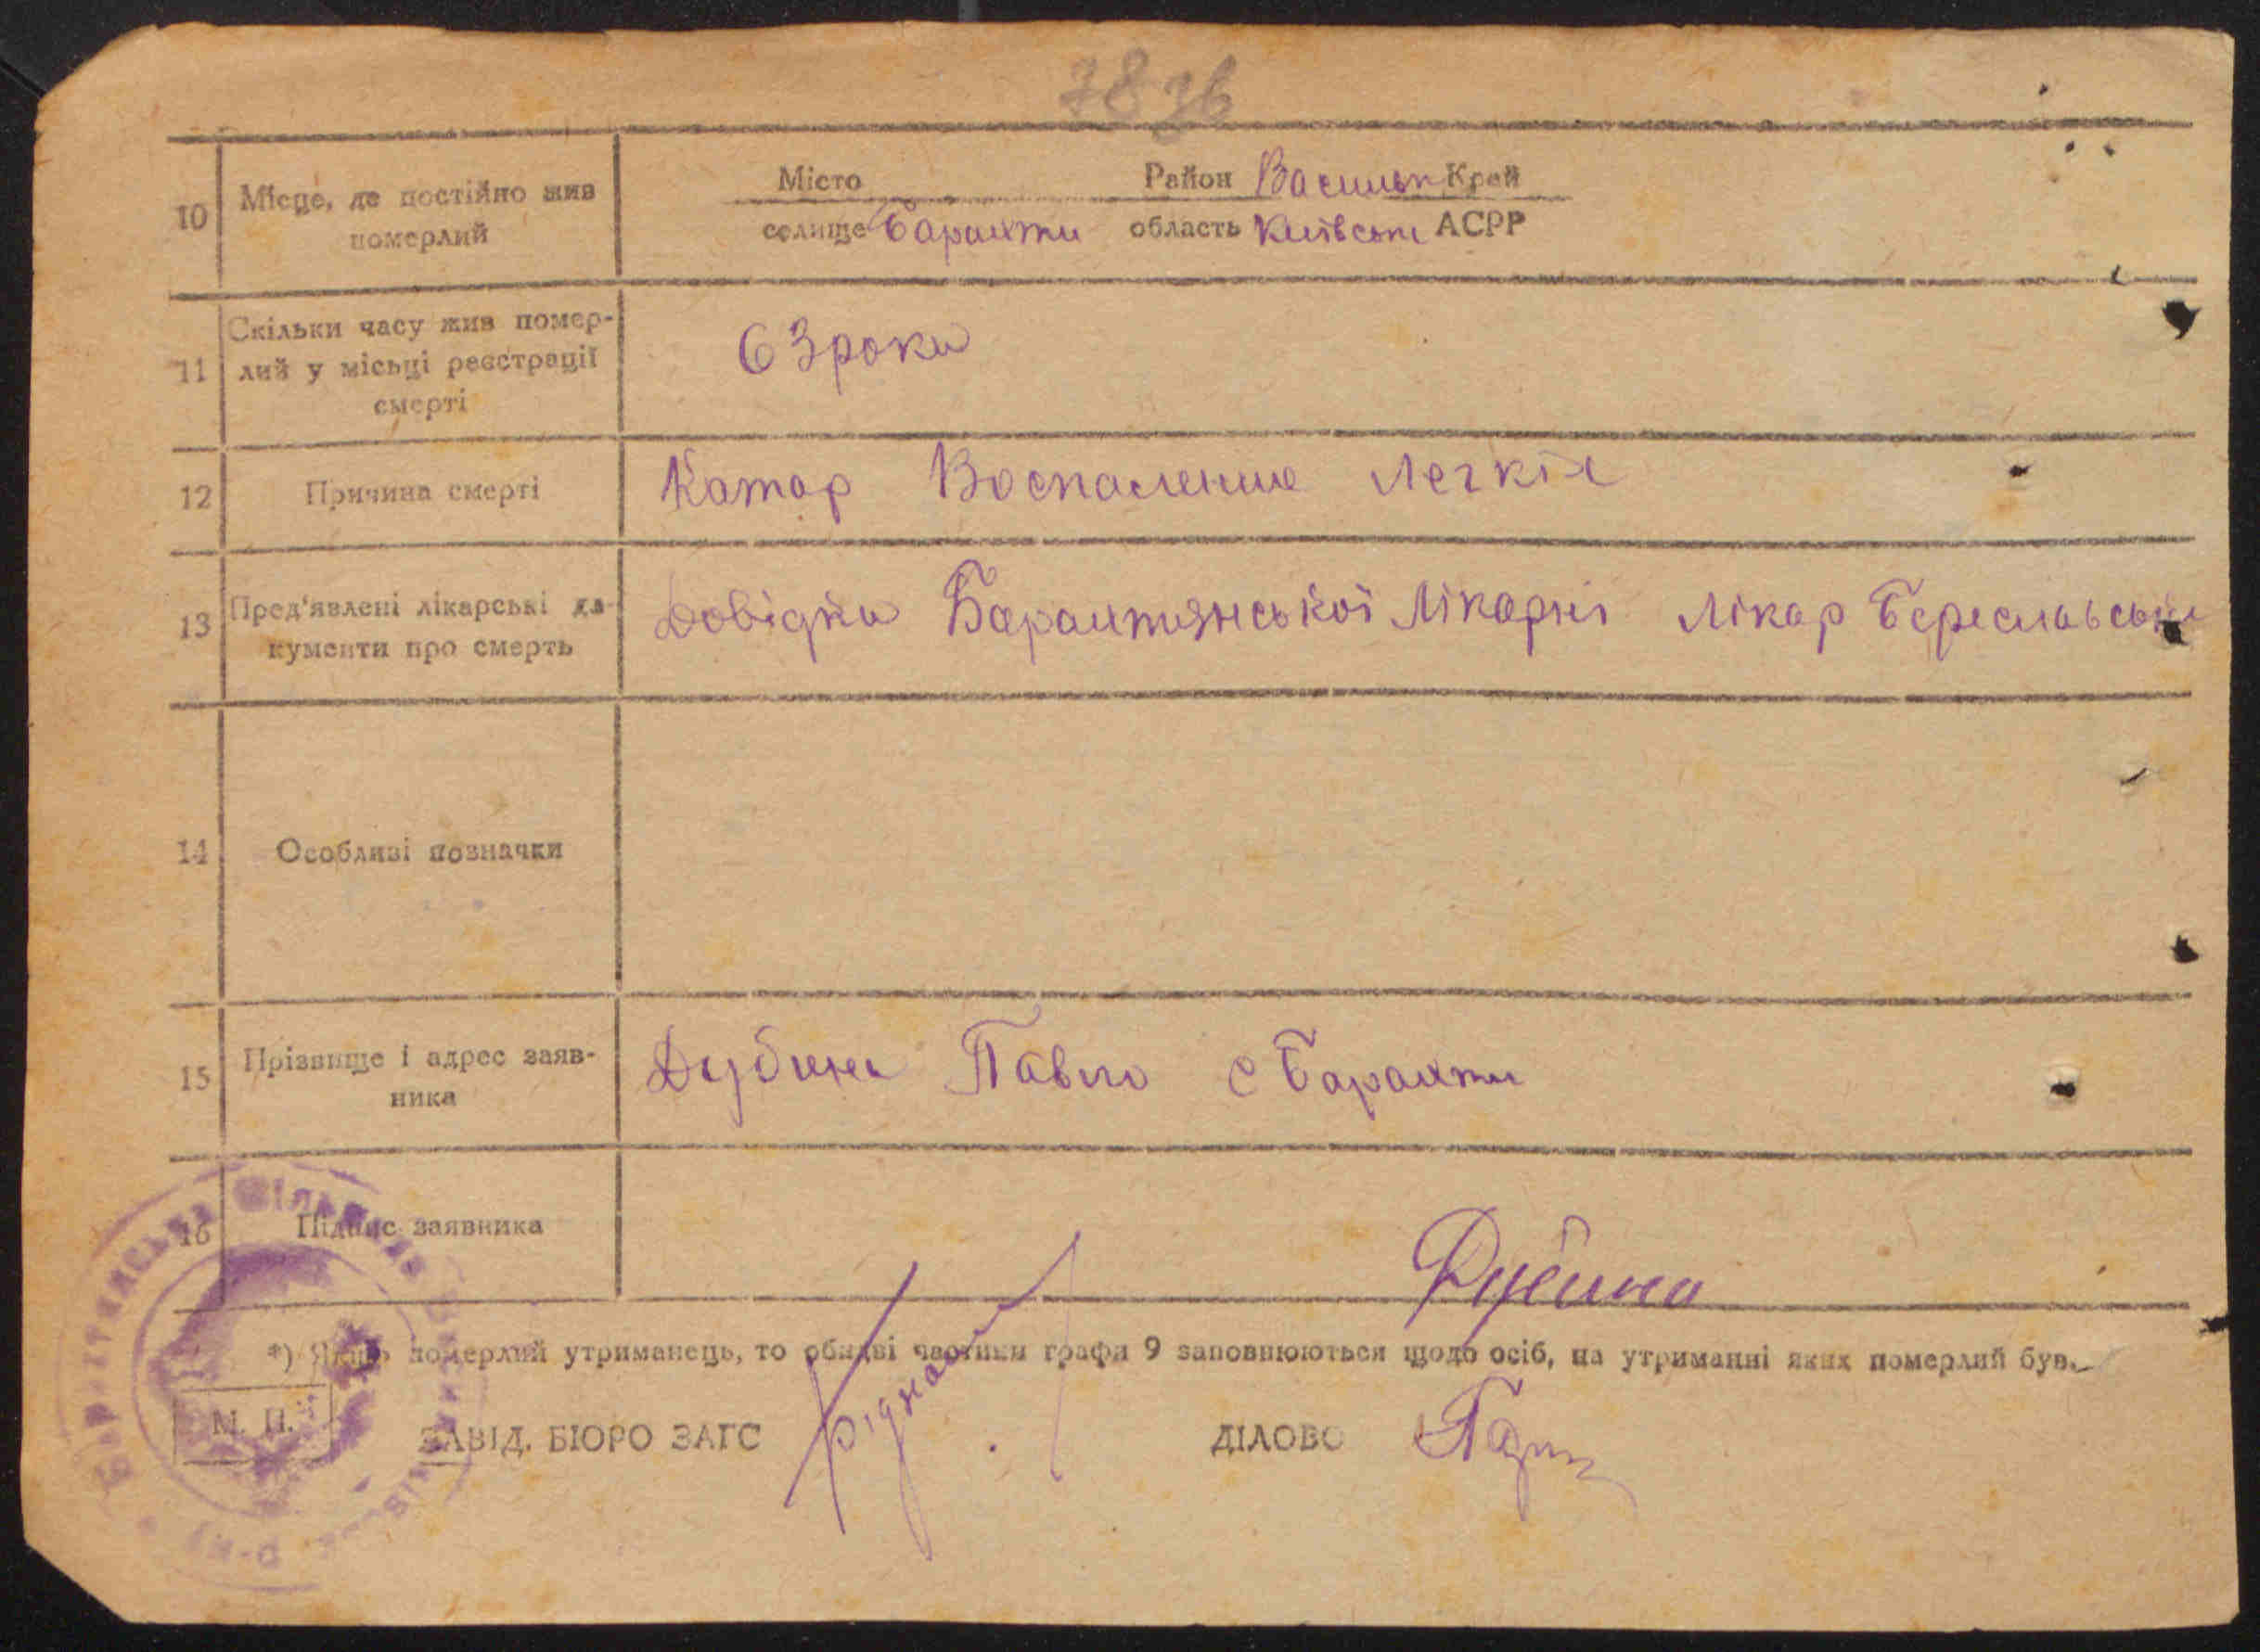 7876
10 Місце, де постійно жив померлий
Місто Район Васильк Край
селище Барахти область Київська АСРР
11 Скільки часу жив помер-
лий у місьці реєстрації
смерті
63 роки
12 Причина смерті
Катар Воспаление Легкіх
13 Пред'явлені лікарські да-
кументи про смерть
Довідка Барахтянської Лікарні Лікар Береславськи
14 Особливі позначки
15 Прізвище і адрес заяв-
ника
Дубина Павло с Барахти
16 Підпис заявника
Дубина
*) Якщо померлий утриманець, то обидві частини графи 9 заповнюються щодо осіб, на утриманні яких померлий був.
М. П.
ЗАВІД. БЮРО ЗАГС
ДІЛОВО